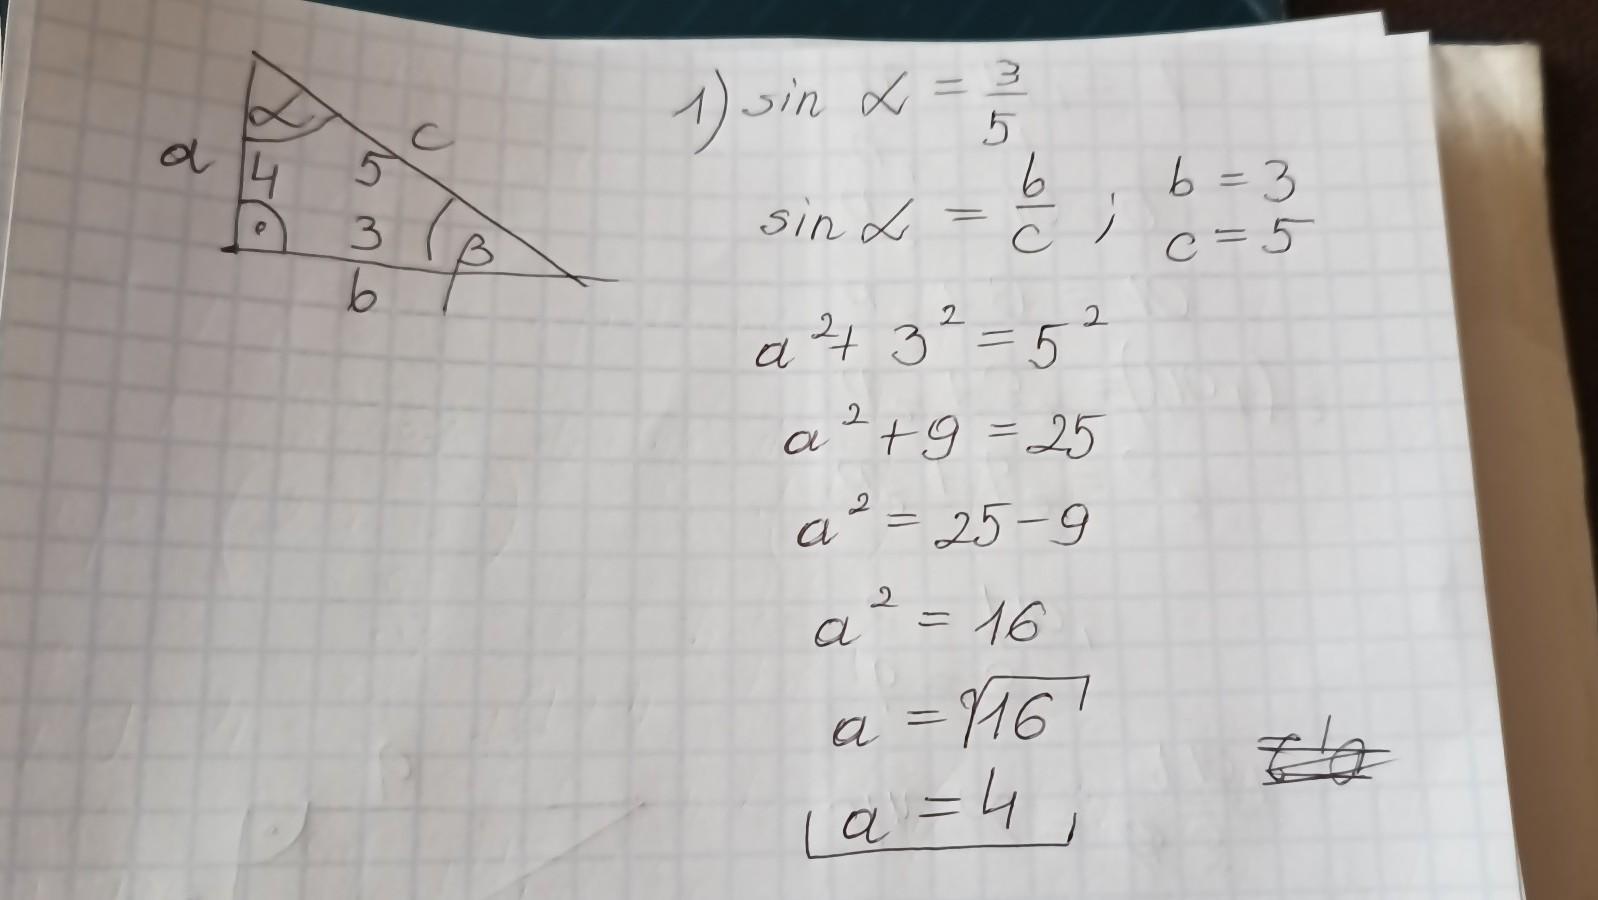 α
a 4 5 c
3 β
b
1) sin α = 3/5
sin α = b/c ; b = 3
c = 5
a² + 3² = 5²
a² + 9 = 25
a² = 25 - 9
a² = 16
a = √16
a = 4